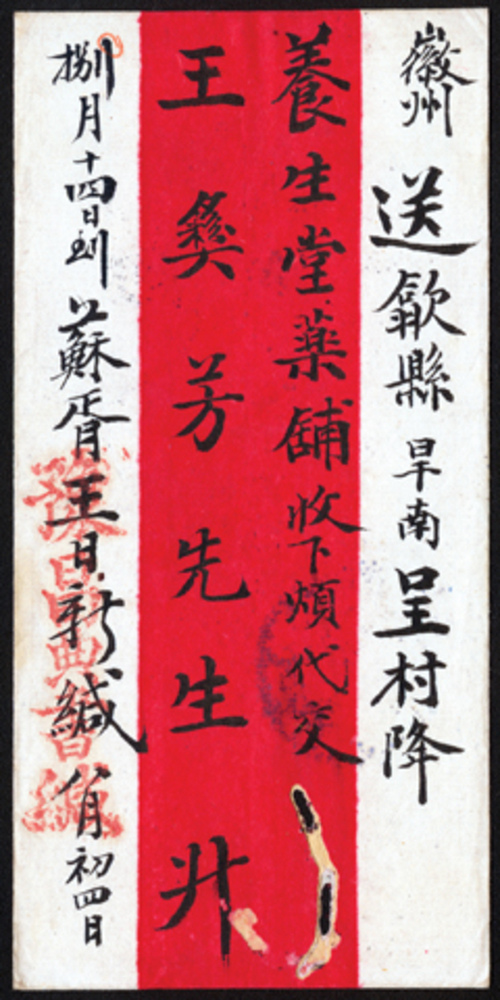 徽州送歙縣旱南呈村降
養生堂薬舖收下煩代交
王彜芳先生升
捌月十四日到
蘇胥王日新緘八月初四日